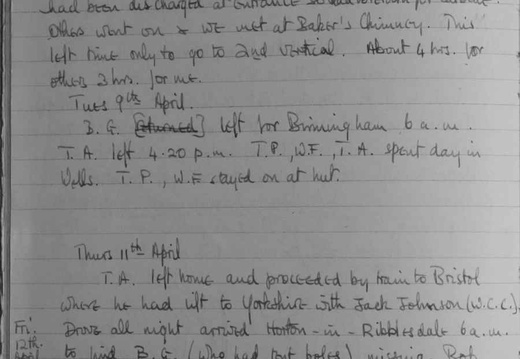 had been discharged at Entrance
Others went on & we met at Baker's Chimney. This
left time only to go to 2nd Vertical. About 4 hrs. for
others 3 hrs. for me.
Tues 9th April.
B. E. [returned] left for Birmingham 6 a.m.
T. A. left 4.20 p.m. T.P., W.F., T.A. spent day in
Wells. T. P., W.F stayed on at hut.
Thurs 11th April
T.A. left home and proceeded by train to Bristol
where he had lift to Yorkshire with Jack Johnson (W.C.C.).
Fri. Drove all night arrived Horton-in-Ribblesdale 6 a.m.
12th to find B. E. (who had tent poles) missing